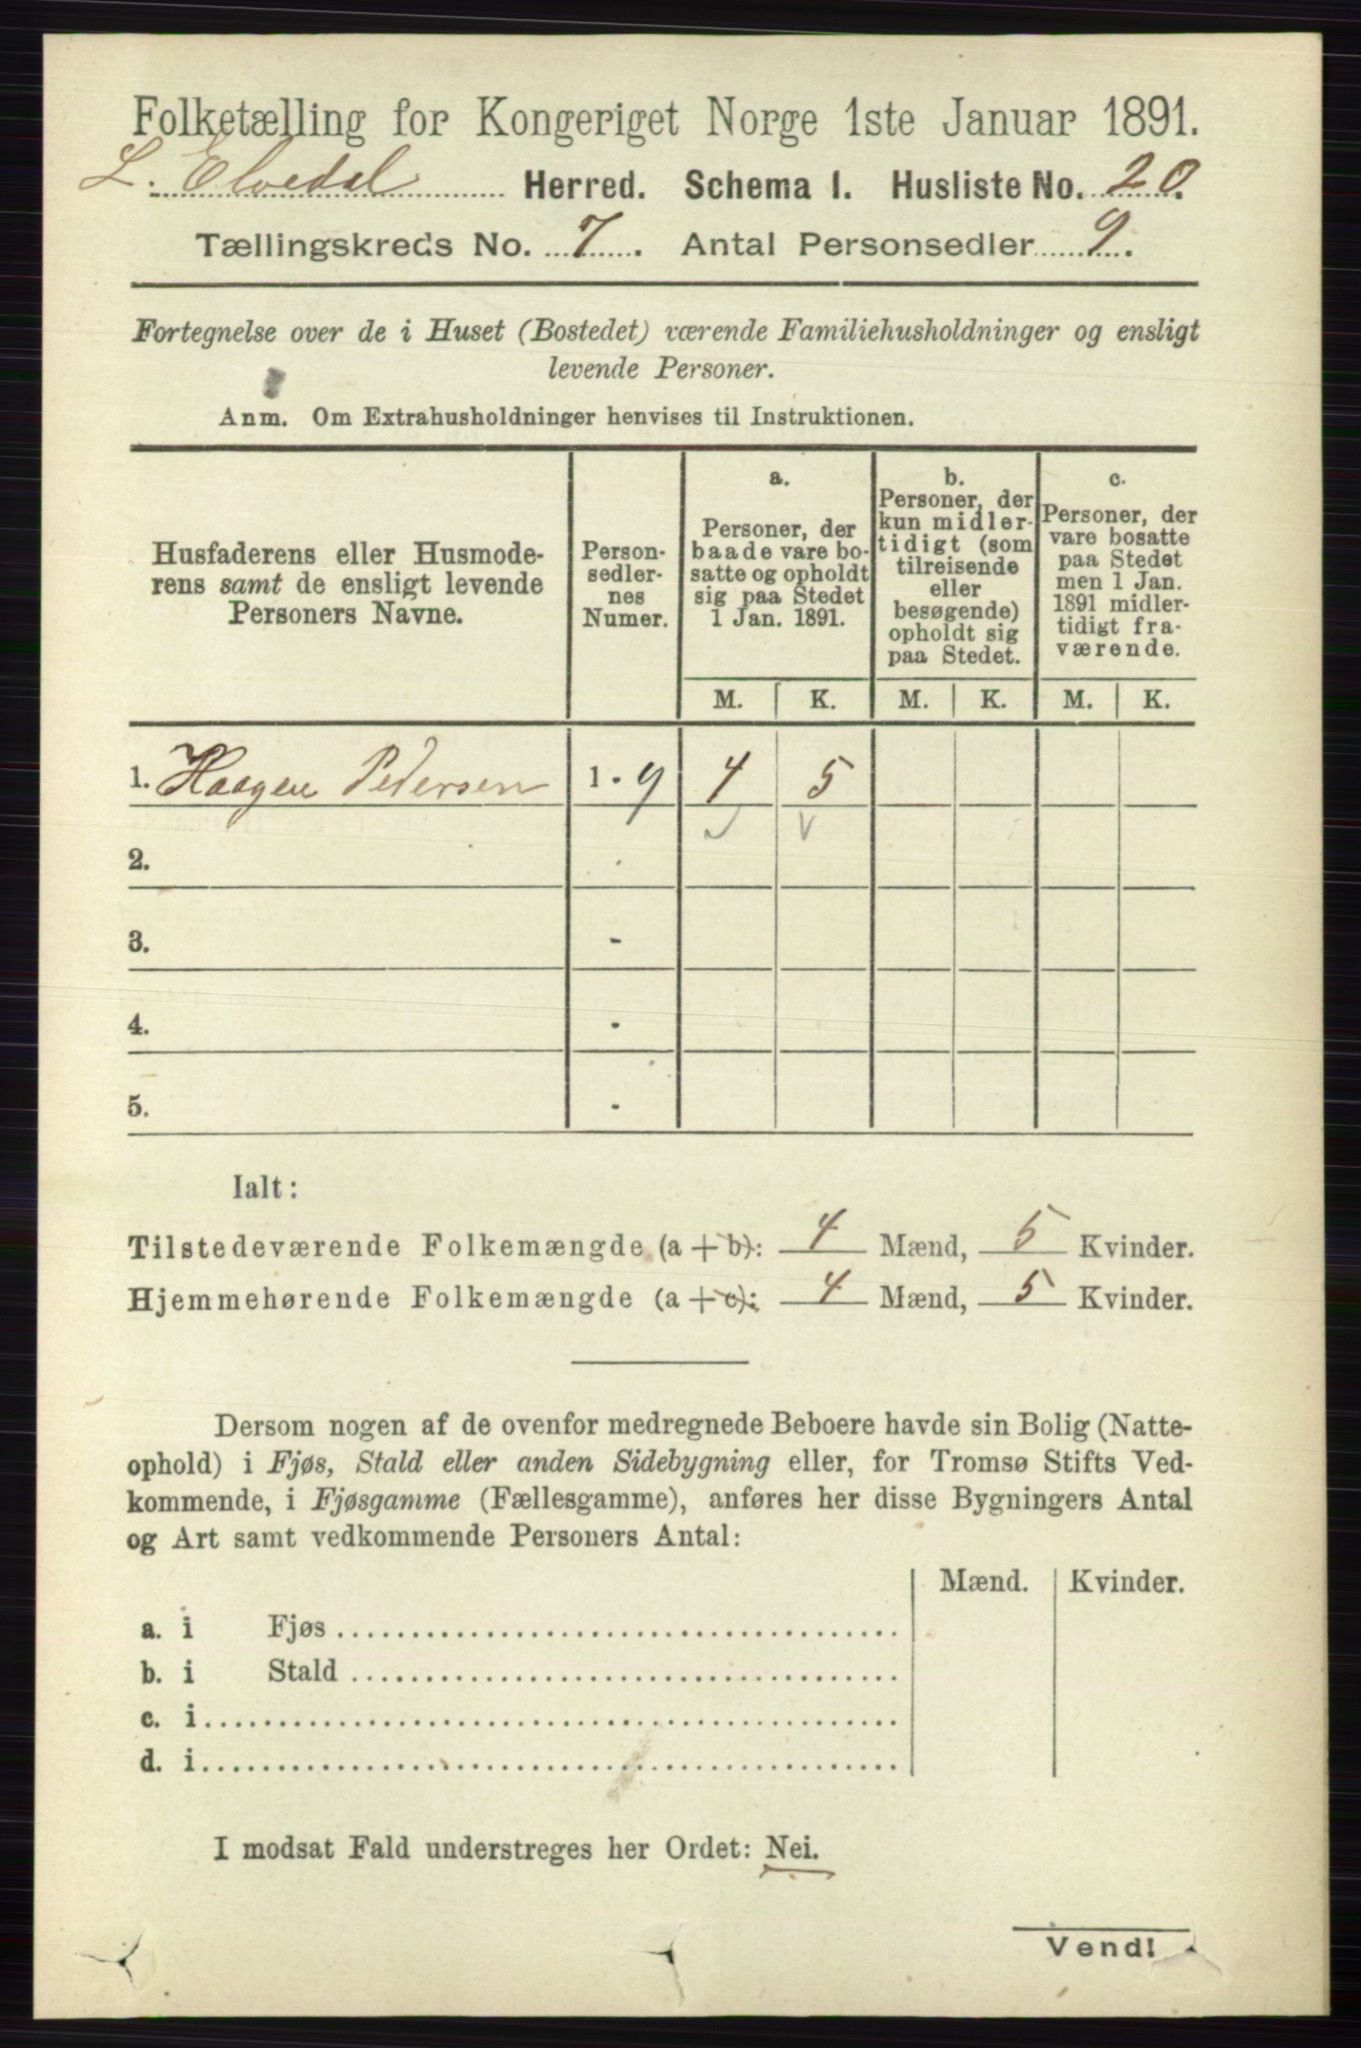 Folketælling for Kongeriget Norge 1ste Januar 1891.
L. Elvedal Herred. Schema I. Husliste No. 20.
Tællingskreds No. 7. Antal Personsedler 9.
Fortegnelse over de i Huset (Bostedet) værende Familiehusholdninger og ensligt
levende Personer.
Anm. Om Extrahusholdninger henvises til Instruktionen.
Husfaderens eller Husmode-
rens samt de ensligt levende
Personers Navne.
Person-
sedler-
nes
Numer.
a.
Personer, der
baade vare bo-
satte og opholdt
sig paa Stedet
1 Jan. 1891.
b.
Personer, der
kun midler-
tidigt (som
tilreisende
eller
besøgende)
opholdt sig
paa Stedet.
c.
Personer, der
vare bosatte
paa Stedet
men 1 Jan.
1891 midler-
tidigt fra-
værende.
M. K. M. K. M. K.
1. Haagen Pedersen 1 - 9 4 5
2.
3. -
4. -
5. -
Ialt:
Tilstedeværende Folkemængde (a + b): 4 Mænd, 5 Kvinder.
Hjemmehørende Folkemængde (a + c): 4 Mænd, 5 Kvinder.
Dersom nogen af de ovenfor medregnede Beboere havde sin Bolig (Natte-
ophold) i Fjøs, Stald eller anden Sidebygning eller, for Tromsø Stifts Ved-
kommende, i Fjøsgamme (Fællesgamme), anføres her disse Bygningers Antal
og Art samt vedkommende Personers Antal:
Mænd. Kvinder.
a. i Fjøs
b. i Stald
c. i
d. i
I modsat Fald understreges her Ordet: Nei.
Vend!